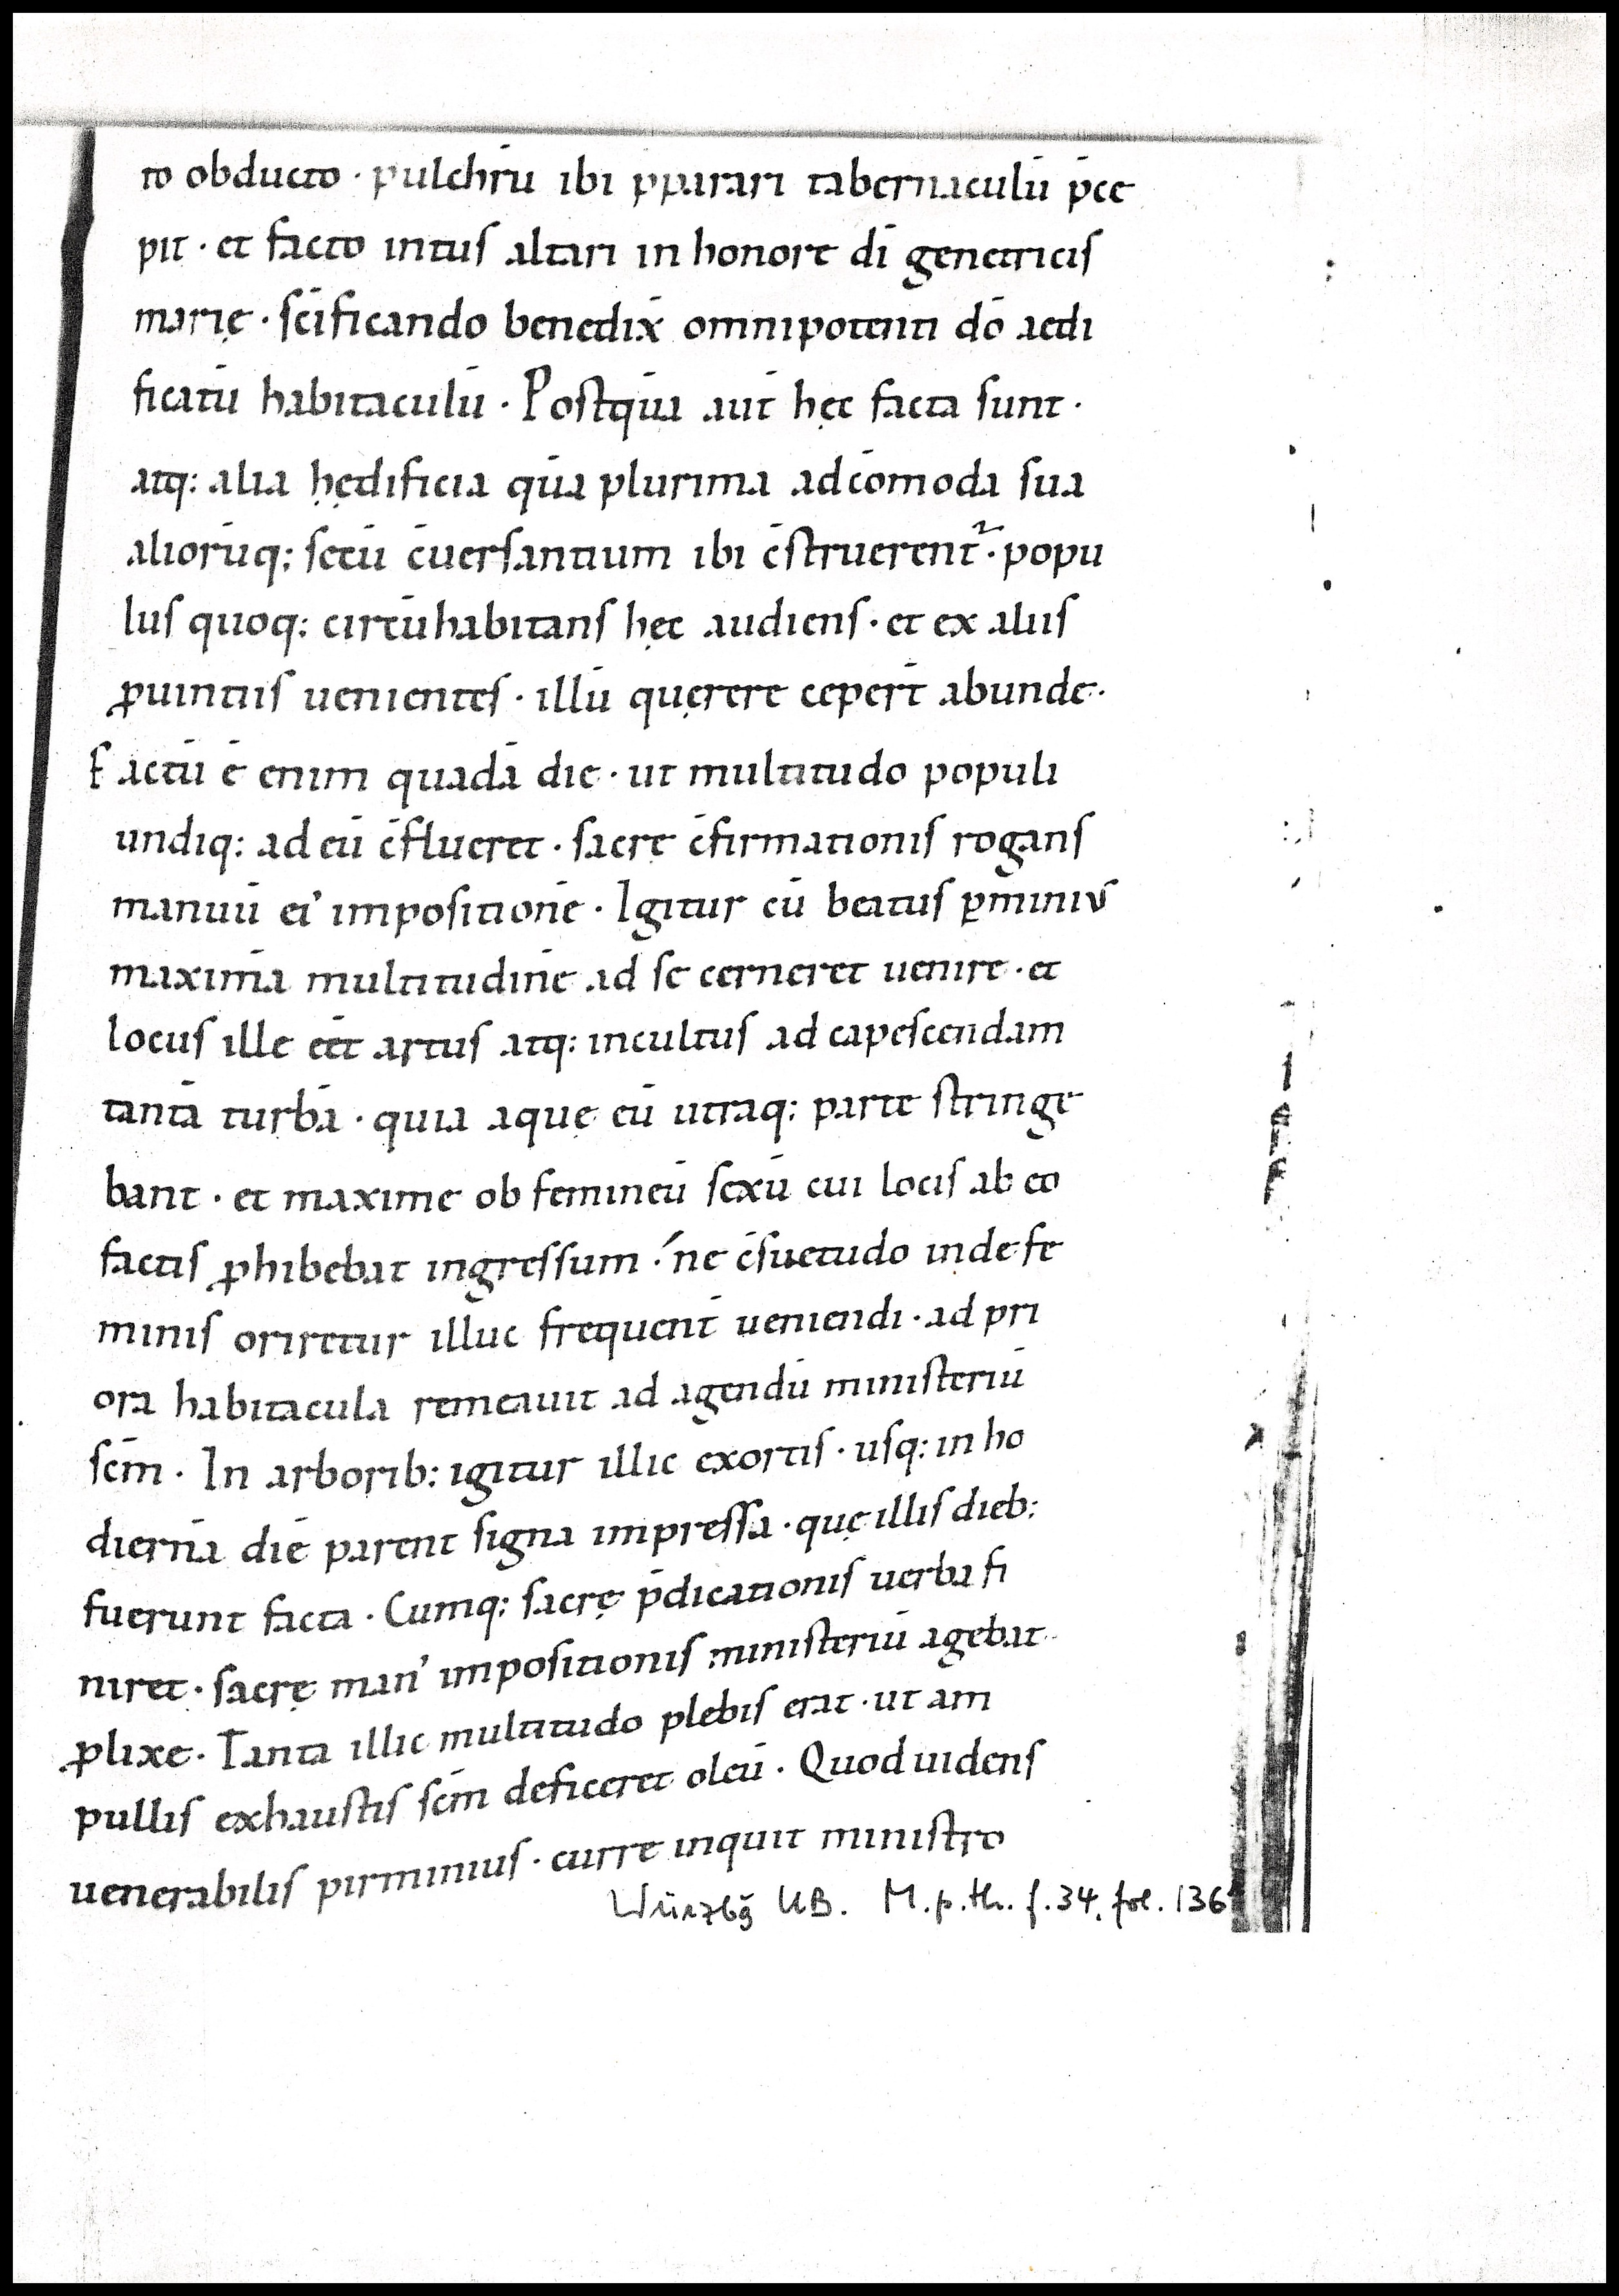 to obducto · pulchrū ibi p̄parari tabernaculū p̄ce
pit · et facto intus altari in honore dī genetricis
marię · sc̄ificando benedix̄ omnipotenti dō aedi
ficatū habitaculū · Postquā aut̄ hęc facta sunt ·
atq: alia hędificia quā plurima ad cōmoda sua
aliorūq; secū c̄uersantium ibi c̄struerent̄ · popu
lus quoq: circūhabitans hęc audiens · et ex aliis
ꝓuintiis uenientes · illū quęrere ceper̄t abunde ·
Factū ē enim quadā die · ut multitudo populi
undiq: ad eū c̄flueret · sacrę c̄firmationis rogans
manuū ei' impositionē · Igitur cū beatus ꝑminius
maximā multitudinē ad se cerneret uenire · et
locus ille eēt artus atq: incultus ad capescendam
tantā turbā · quia aquę eū utraq: parte stringe
bant · et maxime ob femineū sexū cui locis ab eo
factis ꝓhibebat ingressum · ne c̄suetudo inde fe
minis oriretur illuc frequent̄ ueniendi · ad pri
ora habitacula remeauit ad agendū ministeriū
sc̄m · In arborib: igitur illic exortis · usq: in ho
diernā diē parent signa impressa · quę illis dieb:
fuerunt facta · Cumq: sacrę p̄dicationis uerba fi
niret · sacrę man' impositionis ministeriū agebat
ꝓlixe · Tanta illic multitudo plebis erat · ut am
pullis exhaustis sc̄m deficeret oleū · Quod uidens
uenerabilis pirminius · curre inquit ministro
Würzbg UB. M.p.th.f.34, fol. 136